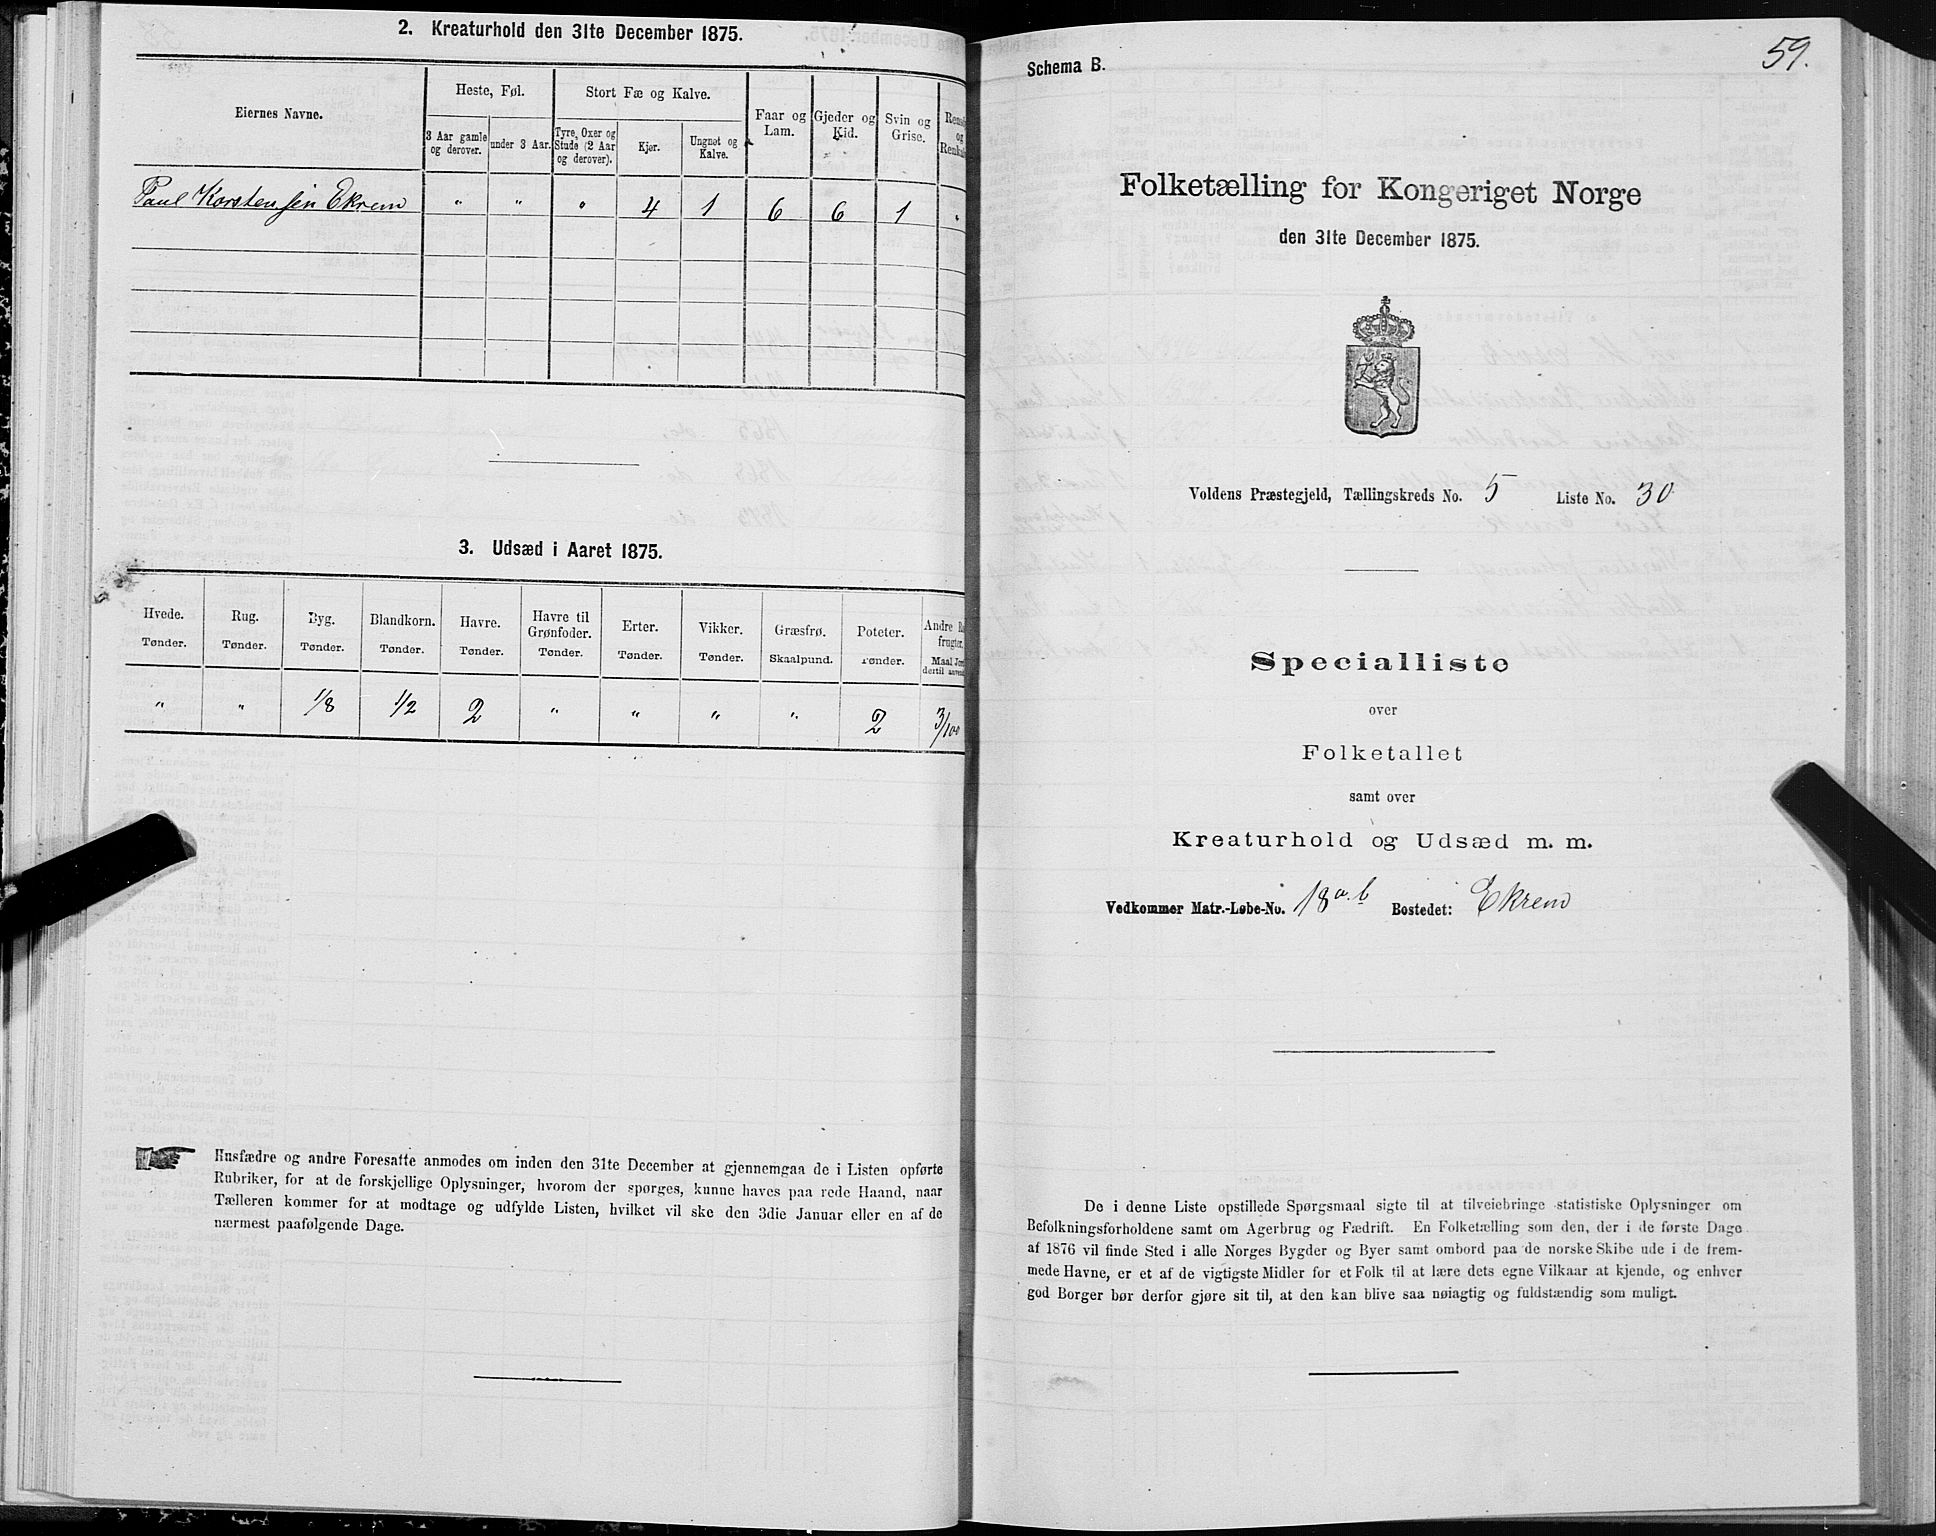 2. Kreaturhold den 31te December 1875.
Eiernes Navne.
Heste, Føl.
Stort Fæ og Kalve.
Faar og Lam.
Gjeder og Kid.
Svin og Grise.
og
3 Aar gamle og derover.
under 3 Aar.
Tyre, Oxer og Stude (2 Aar og derover).
Kjør.
Ungnøt og Kalve.
Paul Korstensen Ekrem " " " 4 1 6 6 1 "
3. Udsæd i Aaret 1875.
Hvede. Tønder.
Rug. Tønder.
Byg. Tønder.
Blandkorn. Tønder.
Havre. Tønder.
Havre til Grønfoder. Tønder.
Erter. Tønder.
Vikker. Tønder.
Græsfrø. Skaalpund.
Poteter. Tønder.
Andre
frugter.
Maal
dertil
" " 1/8 1/2 2 " " " " 2 3/100
Husfædre og andre Foresatte anmodes om inden den 31te December at gjennemgaa de i Listen opførte
Rubriker, for at de forskjellige Oplysninger, hvorom der spørges, kunne haves paa rede Haand, naar
Tælleren kommer for at modtage og udfylde Listen, hvilket vil ske den 3die Januar eller en af de
nærmest paafølgende Dage.
59.
Schema B.
Folketælling for Kongeriget Norge
den 31te December 1875.
Voldens Præstegjeld, Tællingskreds No. 5 Liste No. 30
Specialliste
over
Folketallet
samt over
Kreaturhold og Udsæd m. m.
Vedkommer Matr.-Løbe-No. 18 a. b Bostedet: Ekrem
De i denne Liste opstillede Spørgsmaal sigte til at tilveiebringe statistiske Oplysninger om
Befolkningsforholdene samt om Agerbrug og Fædrift. En Folketælling som den, der i de første Dage
af 1876 vil finde Sted i alle Norges Bygder og Byer samt ombord paa de norske Skibe ude i de frem-
mede Havne, er et af de vigtigste Midler for et Folk til at lære dets egne Vilkaar at kjende, og enhver
god Borger bør derfor gjøre sit til, at den kan blive saa nøiagtig og fuldstændig som muligt.